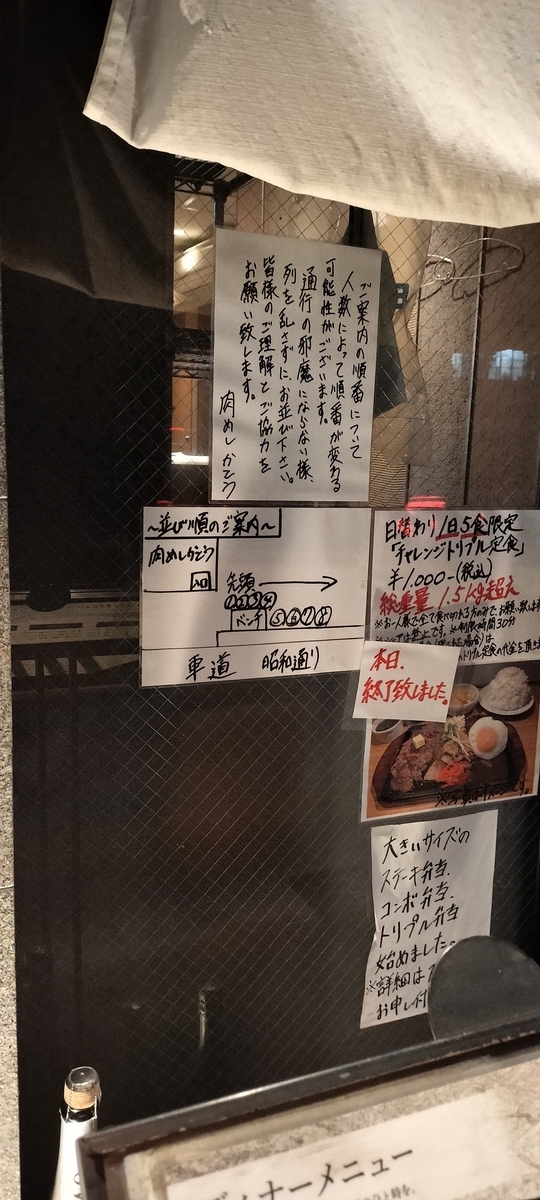 ご案内の順番について
人数によって順番が変わる
可能性がございます。
通行の邪魔にならない様、
列を乱さずに、お並び下さい。
皆様のご理解とご協力を
お願い致します。
～並び順のご案内～
入口
先頭
①②③④
ベンチ
⑤⑥⑦⑧
車道 昭和通り
日替わり 1日5食限定
「チャレンジトリプル定食」
¥1,000-(税込)
総重量 1.5kg超え
本日、
終了致しました。
大きいサイズの
ステーキ弁当、
コンボ弁当、
トリプル弁当
始めました。
※詳細は
お申し付
ディナーメニュー